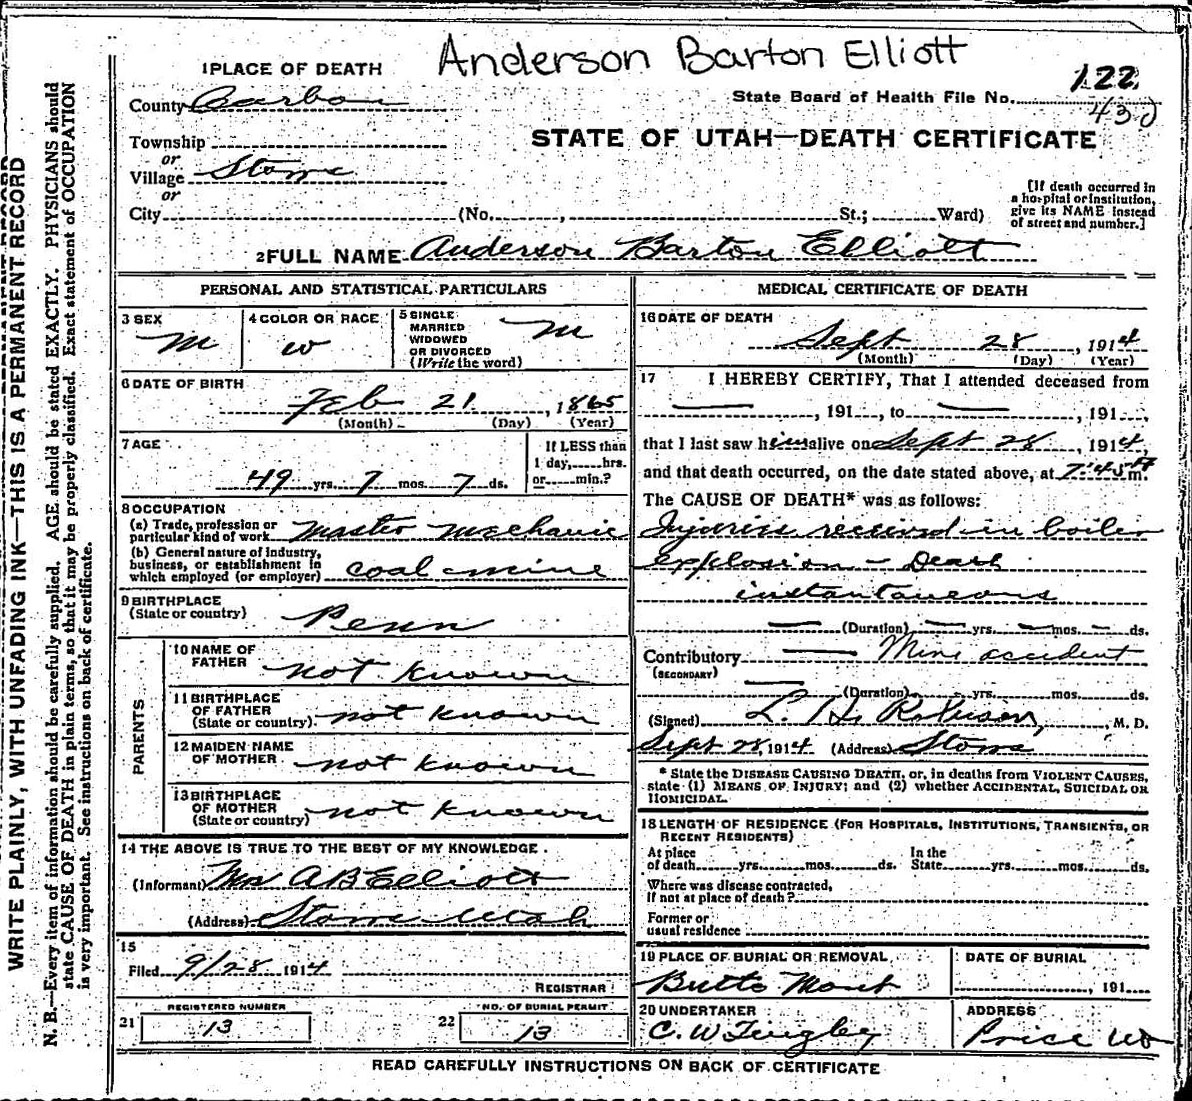 Anderson Barton Elliott
1 PLACE OF DEATH
122
County Carbon
State Board of Health File No.
430
STATE OF UTAH—DEATH CERTIFICATE
Township
or
Village Storrs
or
City (No. , St.; Ward)
[If death occurred in
a hospital or institution,
give its NAME instead
of street and number.]
2 FULL NAME Anderson Barton Elliott
PERSONAL AND STATISTICAL PARTICULARS
3 SEX
M
4 COLOR OR RACE
W
5 SINGLE
MARRIED
WIDOWED
OR DIVORCED
(Write the word)
M
6 DATE OF BIRTH
Feb 21, 1865
(Month) (Day) (Year)
7 AGE
49 yrs. 7 mos. 7 ds.
If LESS than
1 day, hrs.
or min.?
8 OCCUPATION
(a) Trade, profession or
particular kind of work Master Mechanic
(b) General nature of industry,
business, or establishment in
which employed (or employer) coal mine
9 BIRTHPLACE
(State or country) Penn
PARENTS
10 NAME OF
FATHER not known
11 BIRTHPLACE
OF FATHER
(State or country) not known
12 MAIDEN NAME
OF MOTHER not known
13 BIRTHPLACE
OF MOTHER
(State or country) not known
14 THE ABOVE IS TRUE TO THE BEST OF MY KNOWLEDGE.
(Informant) Mrs A B Elliott
(Address) Storrs Utah
15
Filed 9/28 1914
REGISTRAR
21 REGISTERED NUMBER
13
22 NO. OF BURIAL PERMIT
13
MEDICAL CERTIFICATE OF DEATH
16 DATE OF DEATH
Sept 28, 1914
(Month) (Day) (Year)
17 I HEREBY CERTIFY, That I attended deceased from
— , 191 , to — , 191
that I last saw him alive on Sept 28, 1914,
and that death occurred, on the date stated above, at 7:45 m.
The CAUSE OF DEATH* was as follows:
Injuries received in boiler
explosion - Death
instantaneous
— (Duration) — yrs. — mos. — ds.
Contributory — Mine accident
(SECONDARY)
— (Duration) yrs. mos. ds.
(Signed) L. H. Robinson, M. D.
Sept 28, 1914 (Address) Storrs
* State the DISEASE CAUSING DEATH, or, in deaths from VIOLENT CAUSES,
state (1) MEANS OF INJURY; and (2) whether ACCIDENTAL, SUICIDAL OR
HOMICIDAL.
18 LENGTH OF RESIDENCE (FOR HOSPITALS, INSTITUTIONS, TRANSIENTS, OR
RECENT RESIDENTS)
At place
of death yrs. mos. ds.
In the
State yrs. mos. ds.
Where was disease contracted,
If not at place of death?
Former or
usual residence
19 PLACE OF BURIAL OR REMOVAL
Butte Mont
DATE OF BURIAL
, 191
20 UNDERTAKER
C. W. Tingley
ADDRESS
Price
READ CAREFULLY INSTRUCTIONS ON BACK OF CERTIFICATE
WRITE PLAINLY, WITH UNFADING INK—THIS IS A PERMANENT RECORD
N. B.—Every item of information should be carefully supplied. AGE should be stated EXACTLY. PHYSICIANS should
state CAUSE OF DEATH in plain terms, so that it may be properly classified. Exact statement of OCCUPATION
is very important. See instructions on back of certificate.